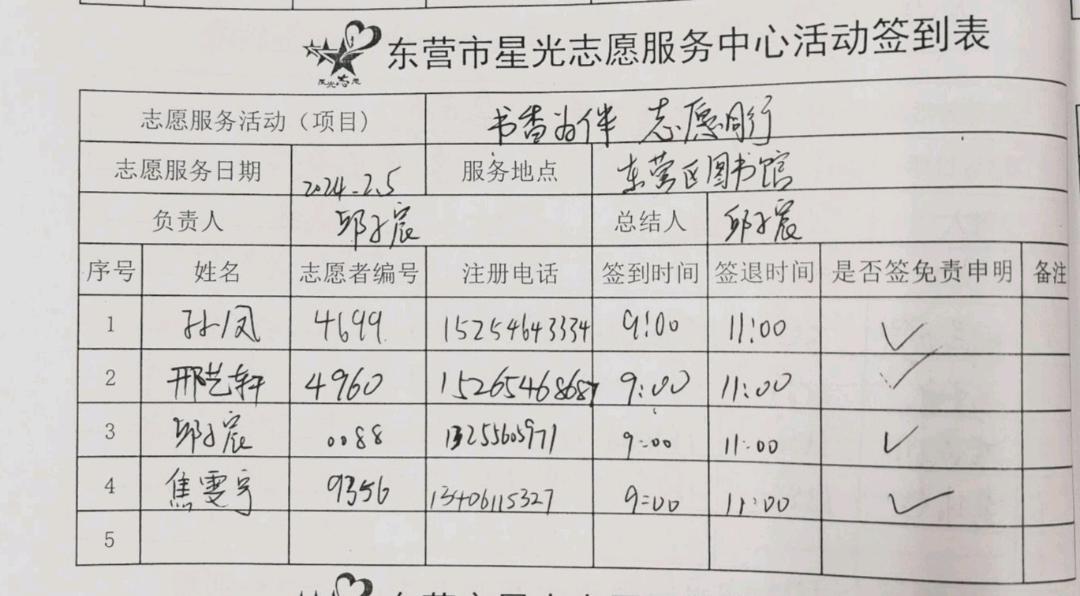 东营市星光志愿服务中心活动签到表
志愿服务活动（项目） 书香为伴 志愿同行
志愿服务日期 2024.2.5 服务地点 东营区图书馆
负责人 邱子宸 总结人 邱子宸
序号 姓名 志愿者编号 注册电话 签到时间 签退时间 是否签免责申明 备注
1 孙凤 4699 15254643334 9:00 11:00 ✓
2 邢艺轩 4960 15265468687 9:00 11:00 ✓
3 邱子宸 0088 13255605971 9:00 11:00 ✓
4 焦雯宇 9356 13406115327 9:00 11:00 ✓
5